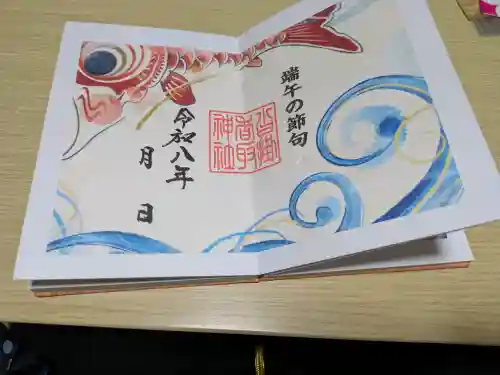 端午の節句
香取神社
令和八年
月
日